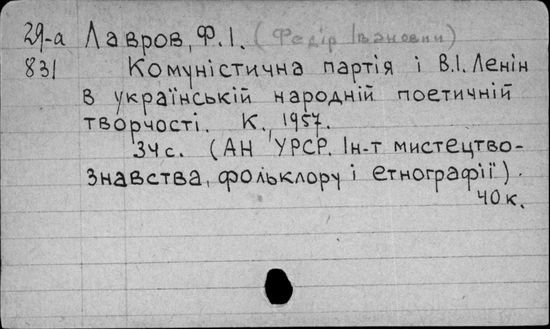 29-а Лавров, Ф.І. (Федір Іванович)
831 Комуністична партія і В.І. Ленін
в українській народній поетичній
творчості. К., 1957.
34с. (АН УРСР. Ін-т мистецтво-
знавства, фольклору і етнографії).
40к.